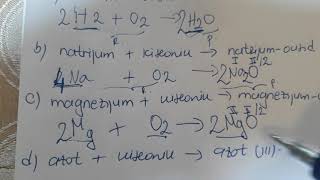 2H2 + O2 → 2H2O
R P
b) natrijum + kiseonik → natrijum-oksid
R P
I II/2
4Na + O2 → 2Na2O
c) magnezijum + kiseonik → magnezijum-
II II/2
2Mg + O2 → 2MgO
d) azot + kiseonik → azot (III)-